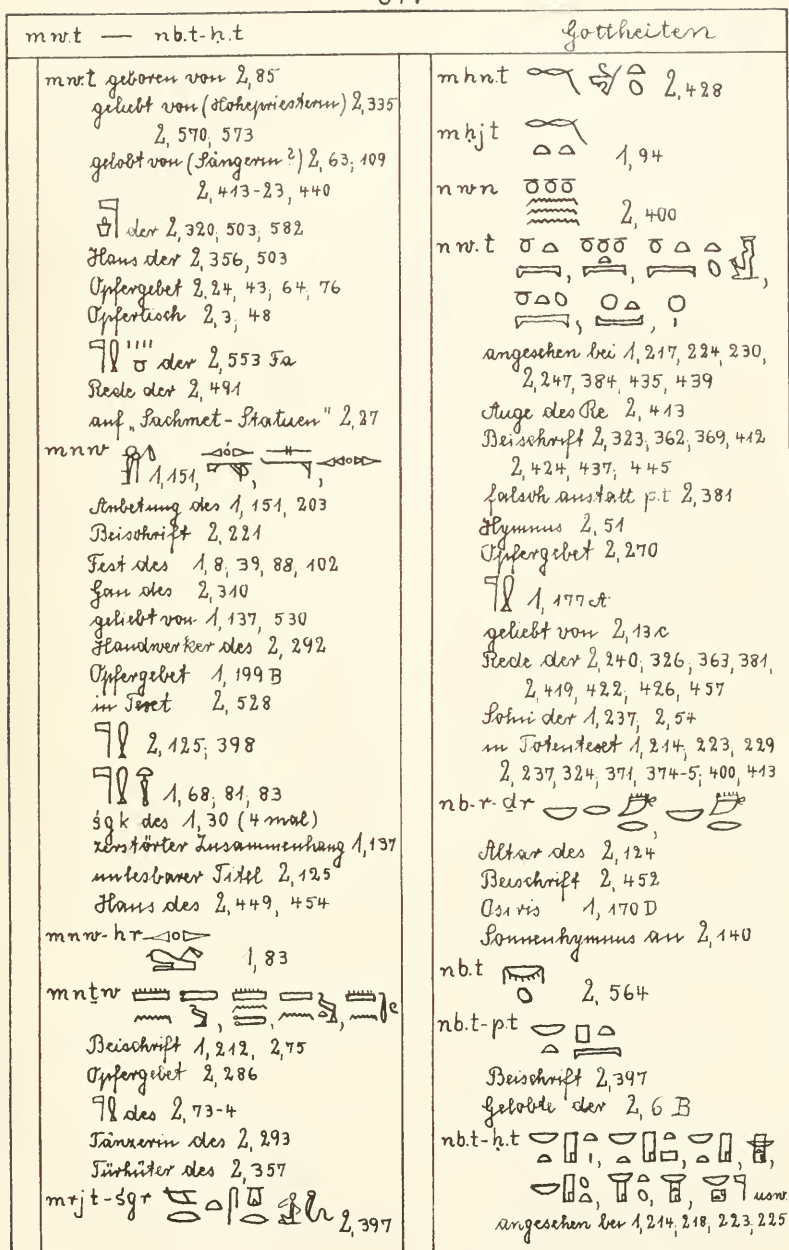 mw.t — nb.t-ḥ.t
Gottheiten
mw.t geboren von 2,85
geliebt von (Hohepriesterin) 2,335
2, 570, 573
gelobt von (Sängerin ?) 2, 63; 109
2, 413-23, 440
der 2,320; 503; 582
Haus der 2,356, 503
Opfergebet 2,24, 43; 64, 76
Opfertisch 2,3; 48
der 2,553 Fa
Rede der 2,491
auf „Sachmet-Statuen" 2,27
mnw 1,151,
Anbetung des 1,151, 203
Beischrift 2,221
Fest des 1,8; 39, 88, 102
Gau des 2,310
geliebt von 1,137, 530
Handwerker des 2,292
Opfergebet 1,199 B
in Text 2,528
2,125; 398
1,68; 81; 83
śgk des 1,30 (4 mal)
zerstörter Zusammenhang 1,137
unlesbarer Titel 2,125
Haus des 2,449, 454
mnw-hr
1,83
mnṯw
Beischrift 1,212, 2,75
Opfergebet 2,286
des 2,73-4
Tänzerin des 2,293
Türhüter des 2,357
mrjt-śgr 2,397
mhn.t 2,428
mḥjt
1,94
nwn
2,400
nw.t
angesehen bei 1,217, 224, 230,
2,247, 384, 435, 439
Auge des Re 2,413
Beischrift 2,323; 362, 369, 412
2,424, 437; 445
falsch anstatt p.t 2,381
Hymnus 2,51
Opfergebet 2,270
1,177 A
geliebt von 2,13 c
Rede der 2,240; 326; 363, 381,
2,419, 422; 426, 457
Sohn der 1,237; 2,54
in Totentext 1,214; 223, 229
2,237, 324; 371, 374-5; 400, 413
nb-r-ḏr
Altar des 2,124
Beischrift 2,452
Osiris 1,170 D
Sonnenhymnus an 2,140
nb.t
2,564
nb.t-p.t
Beischrift 2,397
Gelobte der 2,6 B
nb.t-ḥ.t
usw.
angesehen bei 1,214; 218, 223; 225